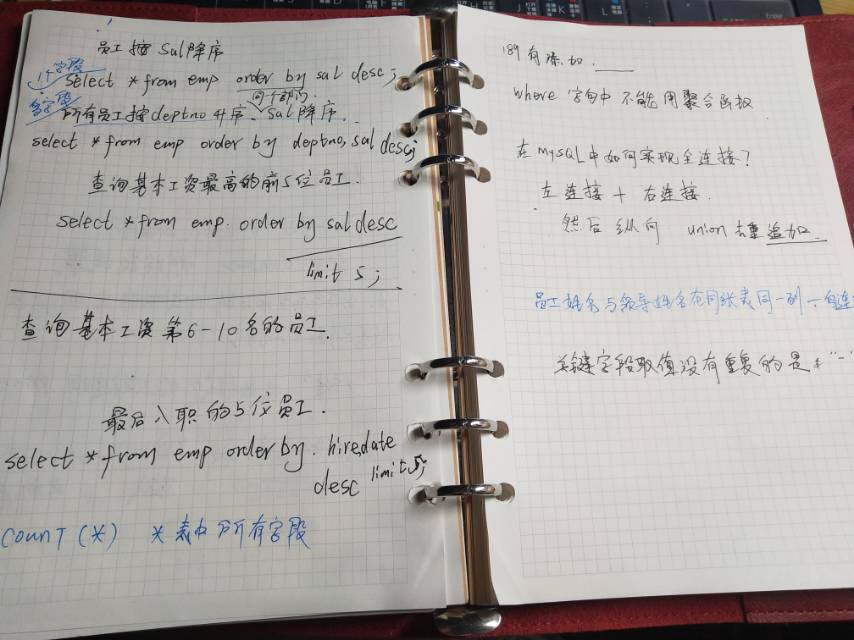 员工按sal降序
1个字段
select * from emp order by sal desc;
同个部门
多字段
所有员工按deptno升序、sal降序.
select * from emp order by deptno, sal desc;
查询基本工资最高的前5位员工.
select * from emp order by sal desc
limit 5;
查询基本工资第6-10名的员工.
最后入职的5位员工.
select * from emp order by hiredate
desc limit 5;
count(*) * 表中所有字段
189有添加
where 字句中不能用聚合函数
在mysql中如何实现全连接?
左连接 + 右连接.
然后纵向 union去重追加.
员工姓名与领导姓名在同张表同一列一自连
关键字段取值没有重复的是主"一"